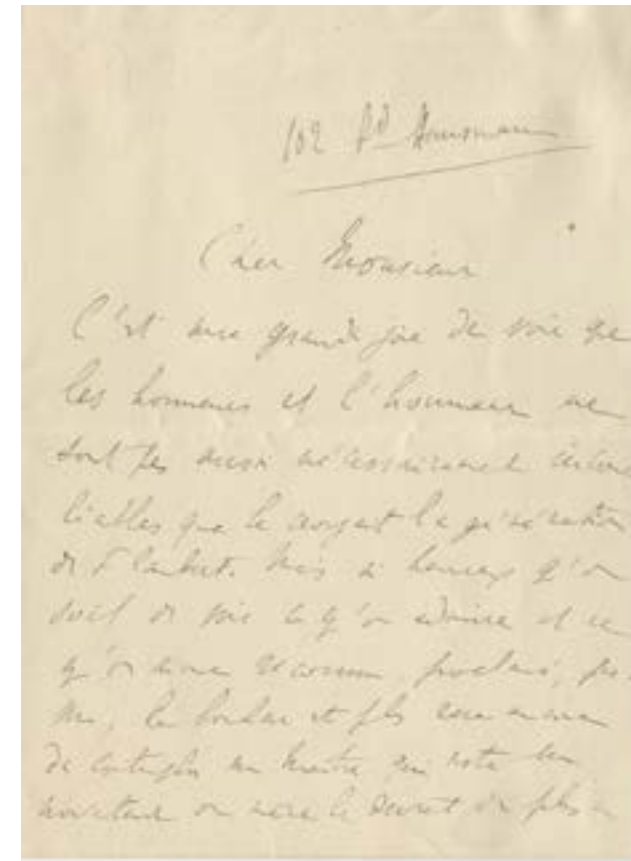 102 Bd Haussmann
Cher Monsieur
C'est une grande joie de voir que
les honneurs et l'honneur ne
sont pas aussi nécessairement inconci
liables que le croyait la génération
de Flaubert. Mais si heureux qu'on
soit de voir ce qu'on admire et ce
qu'on aime reconnu, proclamé,
le bonheur est plus
de un maître qui reste un
novateur on aime le secret